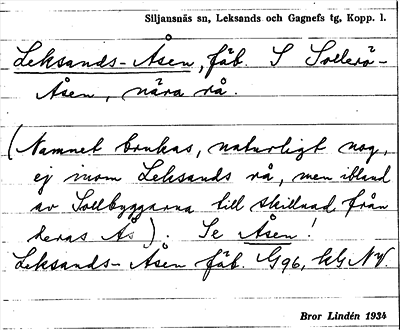 Siljansnäs sn, Leksands och Gagnefs tg, Kopp. l.
Leksands-Åsen, fäb. S Sollerö-
Åsen, nära rå.
(Namnet brukas, naturligt nog,
ej inom Leksands rå, men ibland
av Sollbyggarna till skillnad från
deras Ås). Se Åsen!
Leksands-Åsen fäb. G96, kG NV.
Bror Lindén 1934